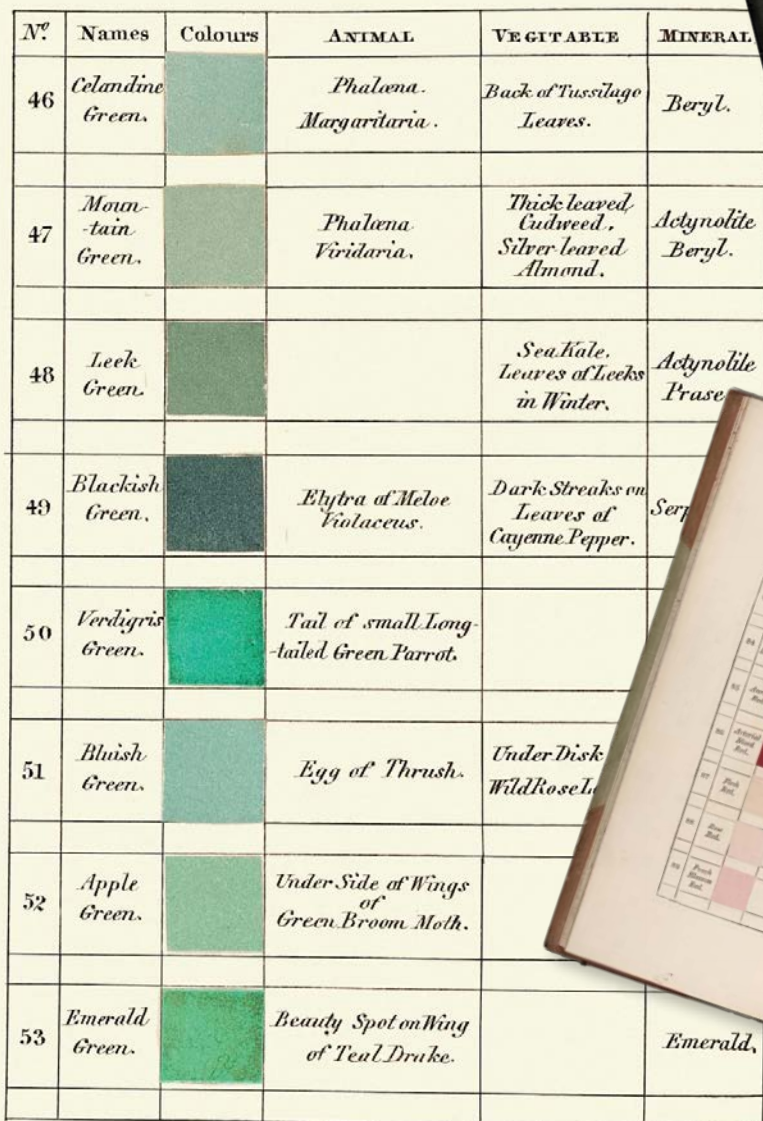 No. Names Colours ANIMAL VEGITABLE MINERAL
46 Celandine Green. Phalæna. Margaritaria. Back of Tussilago Leaves. Beryl.
47 Moun- -tain Green. Phalæna Viridaria. Thick leaved Cudweed, Silver leaved Almond. Actynolite Beryl.
48 Leek Green. Sea Kale. Leaves of Leeks in Winter. Actynolite Prase
49 Blackish Green. Elytra of Meloe Violaceus. Dark Streaks on Leaves of Cayenne Pepper. Serp
50 Verdigris Green. Tail of small Long- -tailed Green Parrot.
51 Bluish Green. Egg of Thrush. Under Disk Wild Rose Le
52 Apple Green. Under Side of Wings of Green Broom Moth.
53 Emerald Green. Beauty Spot on Wing of Teal Drake. Emerald.
Arterial Blood Red.
Flesh Red.
Rose Red.
Peach Blossom Red.